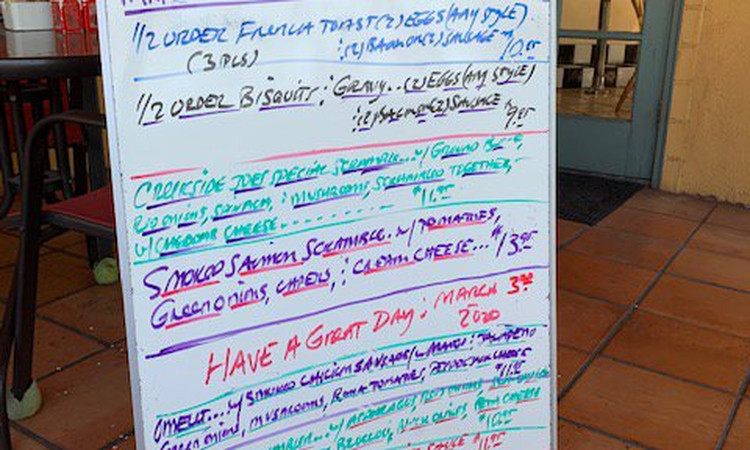 1/2 ORDER FRENCH TOAST (2) EGGS (ANY STYLE)
(3 PCS) : (2) BACON OR (2) SAUSAGE 10.95
1/2 ORDER BISQUITS : GRAVY.. (2) EGGS (ANY STYLE)
: (2) BACON OR (2) SAUSAGE 9.95
CREEKSIDE JOE'S SPECIAL SCRAMBLE... w/ GROUND
RED ONIONS, SPINACH, : MUSHROOMS, SCRAMBLED TOGETHER,
w/ CHEDDAR CHEESE......... $11.95
SMOKED SALMON SCRAMBLE.. w/ TOMATOES,
GREEN ONIONS, CAPERS, : CREAM CHEESE... $13.95
HAVE A GREAT DAY : MARCH 3RD
2020
OMELET... w/ SMOKED CHICKEN SAUSAGE w/ MANGO : JALAPENO
GREEN ONIONS, MUSHROOMS, ROMA TOMATOES, PEPPERJACK CHEESE
$11.95
w/ ASPARAGUS,
BROCCOLI, FETA CHEESE
$10.95
SAUCE $11.95